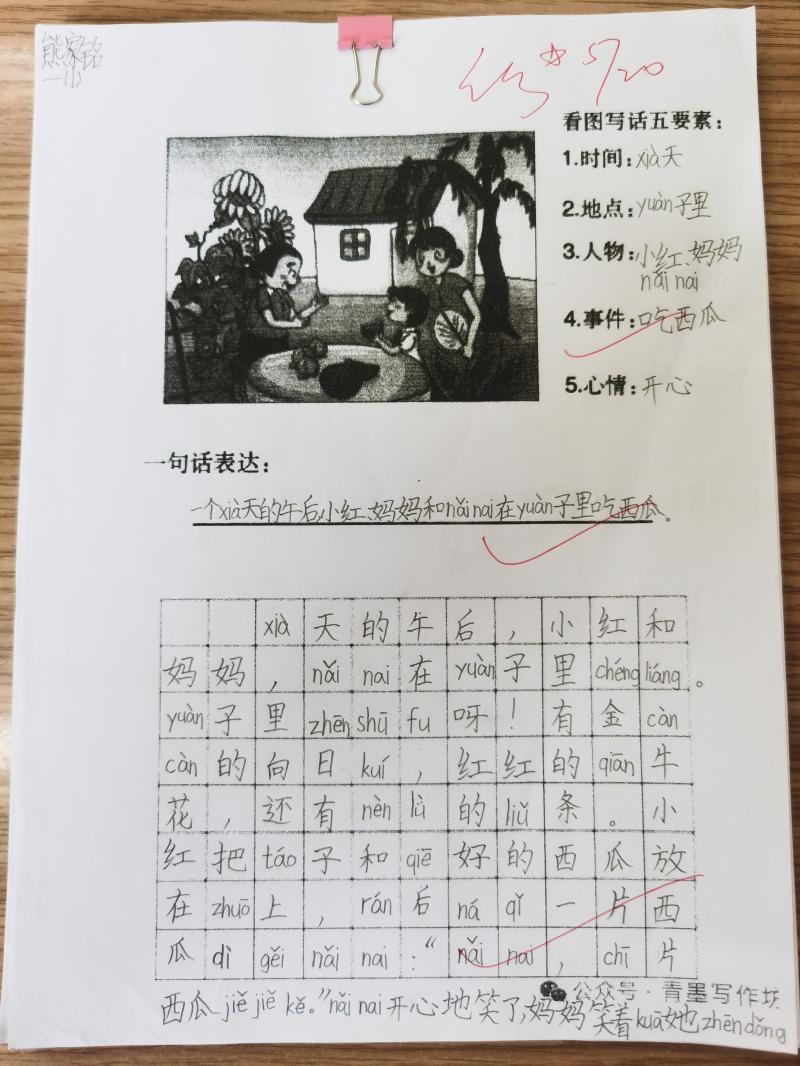 熊家铭
一小
优* 5/20
看图写话五要素：
1.时间：xià天
2.地点：yuàn子里
3.人物：小红、妈妈
nǎi nai
4.事件：吃西瓜
5.心情：开心
一句话表达：
一个xià天的午后,小红、妈妈和nǎi nai在yuàn子里吃西瓜。
xià天的午后，小红和
妈妈，nǎi nai在yuàn子里chéng liáng。
yuàn子里zhēn shū fu呀！有金càn
càn的向日kuí，红红的qiān牛
花，还有nèn lǜ的liǔ条。小
红把táo子和qiē好的西瓜放
在zhuō上，rán后ná qǐ一片西
瓜dì gěi nǎi nai：“nǎi nai，chī片
西瓜jiě jiě kě。”nǎi nai开心地笑了,妈妈笑着kuā她zhēn dǒng
公众号·青墨写作坊